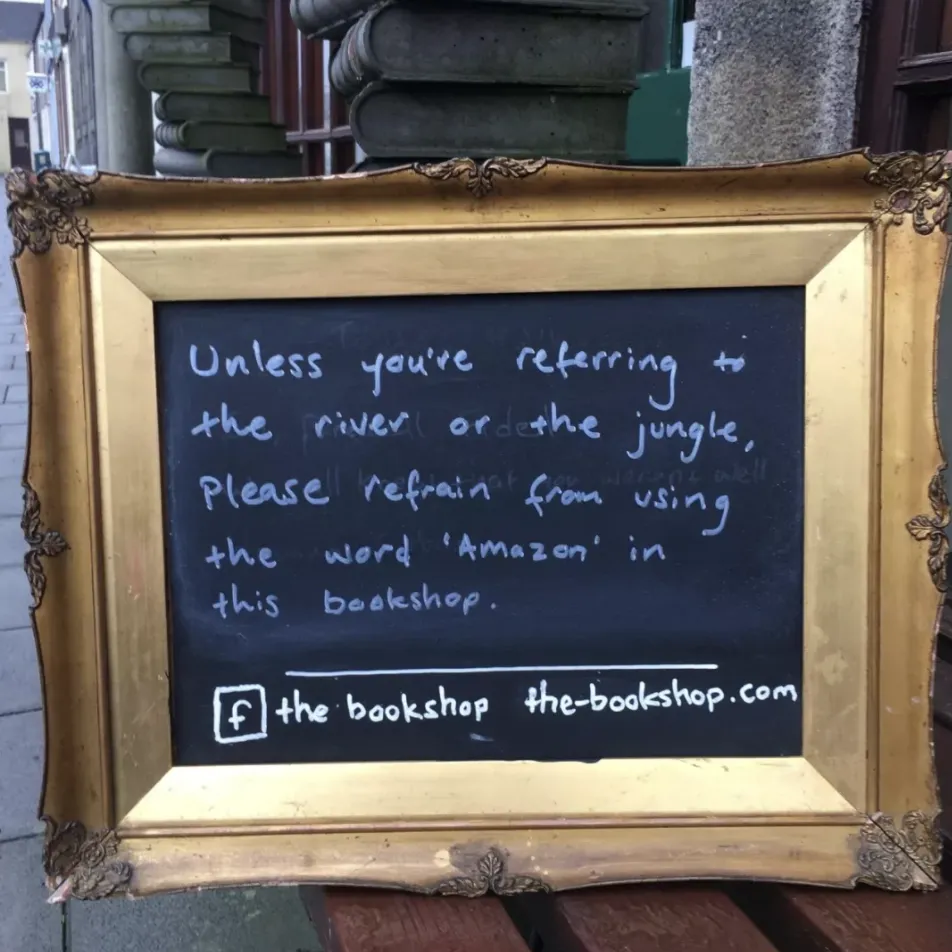 Unless you're referring to
the river or the jungle,
please refrain from using
the word 'Amazon' in
this bookshop.
f the bookshop the-bookshop.com